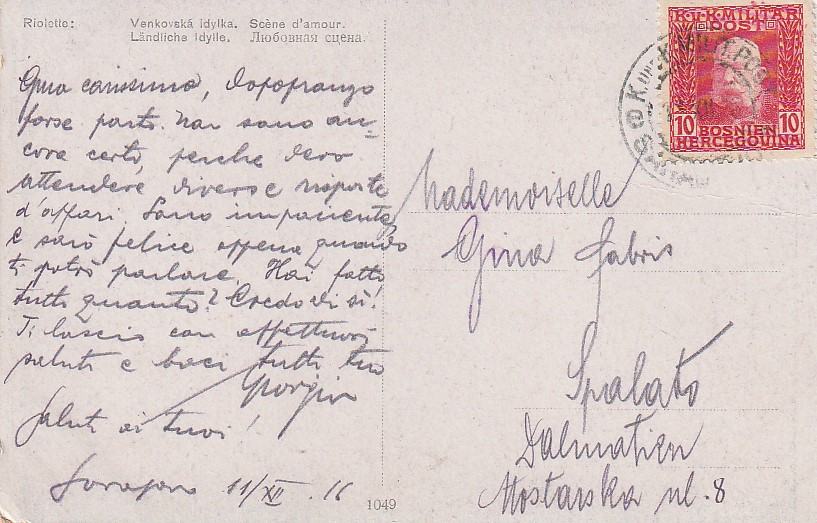 Riolette:
Venkovská idylka. Scène d'amour.
Ländliche Idylle. Любовная сцена.
K.u.K. MILITÄR
POST
10 BOSNIEN 10
HERCEGOVINA
Gina carissima, dopopranzo
forse parto. Non sono an-
cora certo, perche devo
attendere diverse risposte
d'affari. Sono impaziente,
e sarò felice appena quando
ti potrò parlare. Hai fatto
tutto quanto? Credo di sì!
Ti lascio con affettuosi
saluti e baci tutti tuo
Giorgio
Saluti ai tuoi!
Sarajevo 11/XII. 16
1049
Mademoiselle
Gina Fabris
Spalato
Dalmatien
Mostarska ul. 8